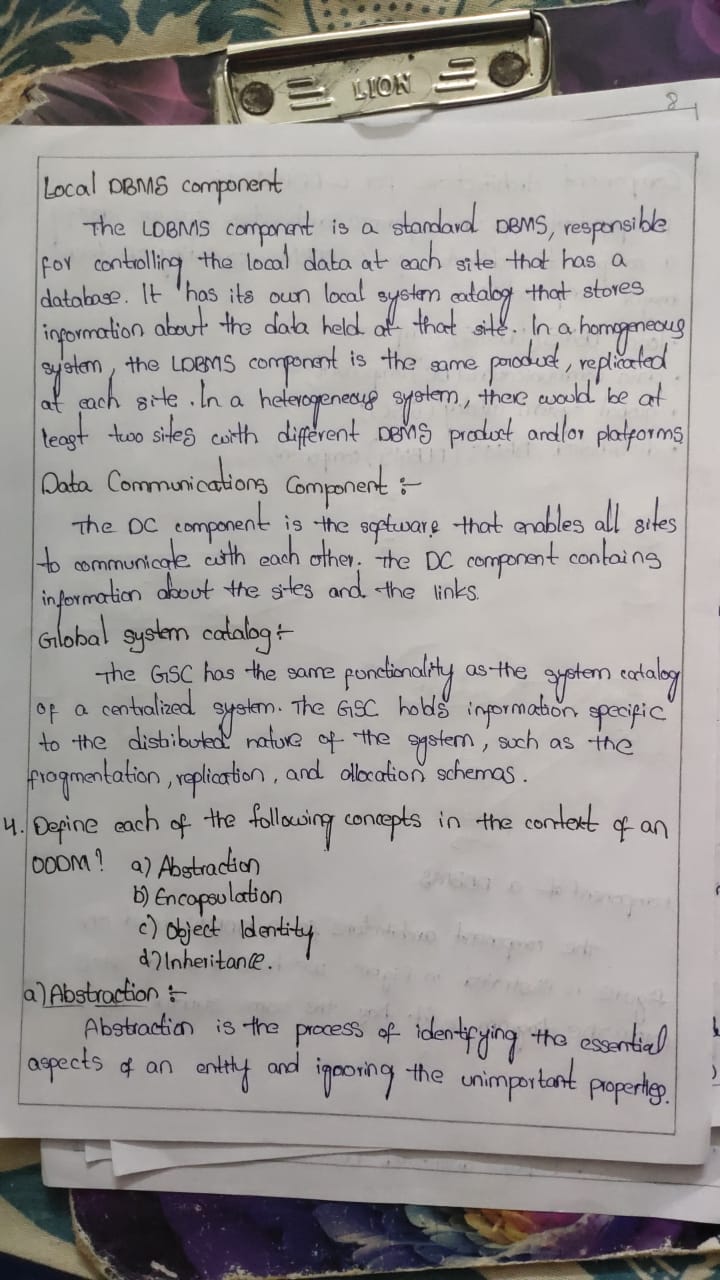 LION
8
Local DBMS component
The LDBMS component is a standard DBMS, responsible
for controlling the local data at each site that has a
database. It has its own local system catalog that stores
information about the data held at that site. In a homogeneous
system, the LDBMS component is the same product, replicated
at each site. In a heterogeneous system, there would be at
least two sites with different DBMS product and/or platforms
Data Communications Component :-
The DC component is the software that enables all sites
to communicate with each other. The DC component contains
information about the sites and the links.
Global system catalog :-
The GSC has the same functionality as the system catalog
of a centralized system. The GSC holds information specific
to the distibuted nature of the system, such as the
fragmentation, replication, and allocation schemas.
4. Define each of the following concepts in the context of an
OODM? a) Abstraction
b) Encapsulation
c) Object Identity
d) Inheritance.
a) Abstraction :-
Abstraction is the process of identifying the essential
aspects of an entity and ignoring the unimportant properties.